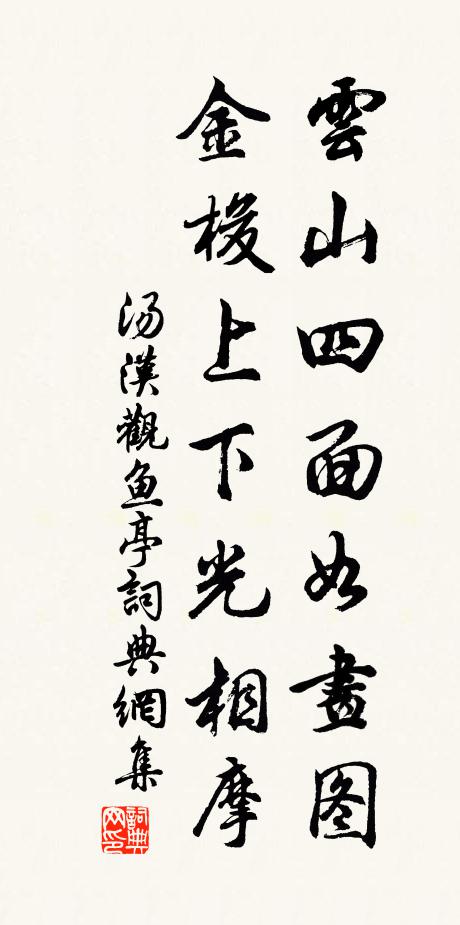 雲山四面如畫图
金梭上下光相摩
汤漢觀鱼亭詞典網集
詞典网印